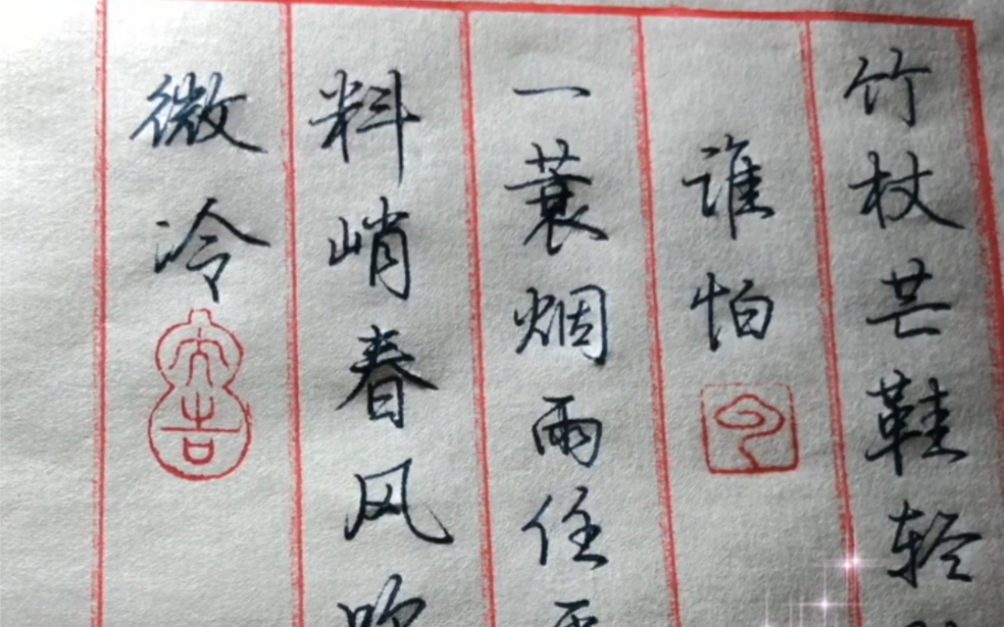 竹杖芒鞋轻
谁怕
一蓑烟雨任平
料峭春风吹
微冷
大吉